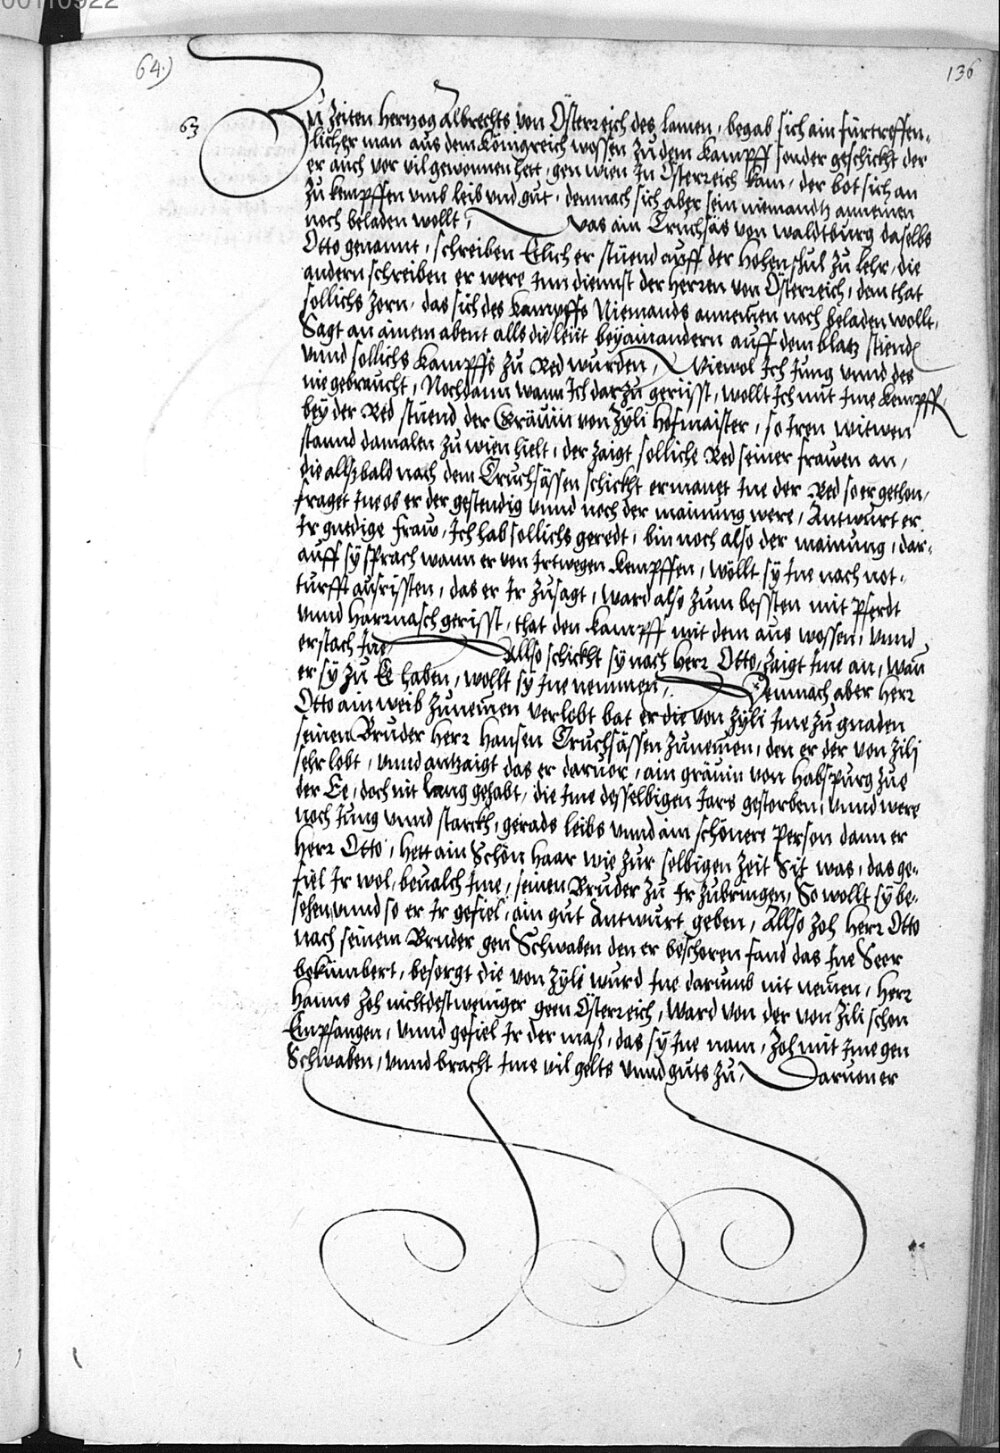 64.)
136
63
Zu Zeiten Herzog Albrechts von Österreich des Lamen, begab sich ain fürtreffen-
licher man aus dem Königreich wossen zu dem Kampff sonder geschickt der
er auch vor vil gewonnen hett, gen wien In Österreich kam, der bot sich an
zu kempffen umb leib vnd gut, demnach sich aber sein niemandtz annemen
noch beladen wollt, was ain Truchsäs von waldtburg daselbs
Otto genannt, schreiben Etlich er stüend auff der Hohenschul zu lehr, die
andern schreiben er were Inn diennst der Herren von Österreich, dem that
sollichs Zorn, das sich des Kampffs Niemands annemen noch beladen wollt,
Sagt an ainem abent alls die leüt beyainandern auff dem blatz stiend
vnnd sollichs Kampffs zu Red wurden, Wiewol Ich Jung vnnd des
nie gebraucht, Nochdann wann Ich darzu gerüsst, wollt Ich mit Ime kempff
bey der Red stüend der Grävin von Zyli Hofmaister, so Iren witwen
stannd damalen zu wien hielt, der zaigt solliche Red seiner frawen an,
die allßbald nach dem Truchsässen schickt ermanet Ine der Red so er gethon,
fraget Ine ob er der gestendig vnnd noch der mainung were, Antwurt er
Ir gnedige fraw, Ich hab sollichs geredt, bin noch also der mainung, dar-
auff sy sprach wann er von Irtwegen kempffen, wöllt sy Ine nach not-
turfft ausrissten, das er Ir zusagt, ward also zum bessten mit Pferdt
vnnd Harrnasch gerisst, that den Kampff mit dem aus wossen, vnnd
erstach Ine Allso schickt sy nach Herr Otto, zaigt Ime an, wan
er sy zu Ee haben, wollt sy Ine nemmen, Demnach aber Herr
Otto ain weib zunemen verlobt bat er die von Zyli Ime zu gnaden
seinen Bruder Herr Hansen Truchsässen zunemen, den er der von Zili
sehr lobt, vnnd antzaigt das er daruor, ain gräuin von Habspurg zue
der Ee, doch nit lang gehabt, die Ime desselbigen Jars gestorben, vnnd were
noch Jung vnnd starckh, gerads leibs vnnd ain schönere Person dann er
Herr Otto, hett ain Schön Haar wie zur selbigen Zeit Sit was, das ge-
fiel Ir wol, beualch Ime, seinen Bruder zu Ir zubringen, So wollt sy be-
sehen, vnnd so er Ir gefiel, ain gut Antwurt geben, Allso zoh Herr Otto
nach seinem Bruder gen Schwaben den er beschoren fand das Ine Seer
bekümbert, besorgt die von Zyli wurd Ine darumb nit nemen, Herr
Hanns zoh nichtdestweniger geen Österreich, ward von der von Zili schon
Empfangen, vnnd gefiel Ir der maß, das sy Ine nam, zoh mit Ime gen
Schwaben, vnnd bracht Ime vil gelts vnnd guts zu, Daruon er